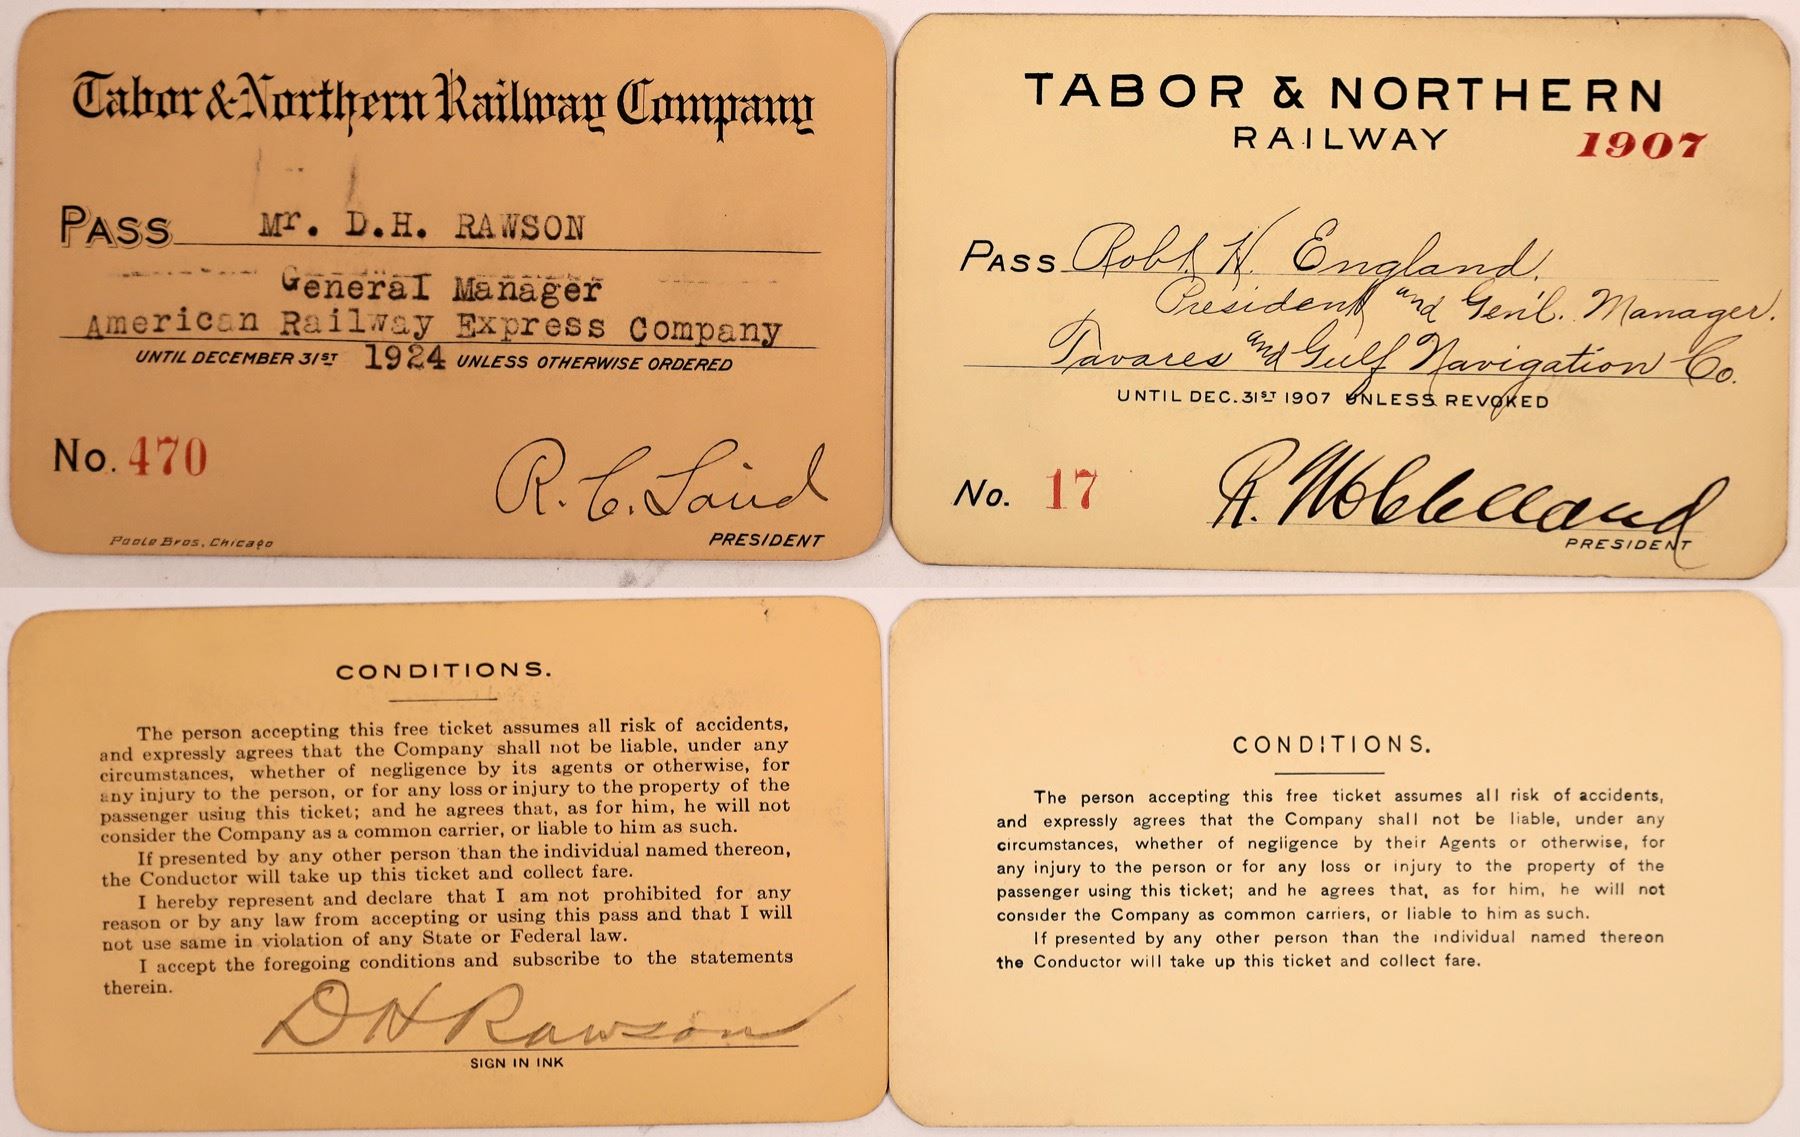 Tabor & Northern Railway Company
PASS Mr. D.H. RAWSON
General Manager
American Railway Express Company
UNTIL DECEMBER 31ST 1924 UNLESS OTHERWISE ORDERED
No. 470
R. C. Laird
Poole Bros. Chicago
PRESIDENT
TABOR & NORTHERN
RAILWAY 1907
PASS Robt. H. England.
President and Gen'l. Manager.
Tavares and Gulf Navigation Co.
UNTIL DEC. 31ST 1907 UNLESS REVOKED
No. 17
R. McClelland
PRESIDENT
CONDITIONS.
The person accepting this free ticket assumes all risk of accidents,
and expressly agrees that the Company shall not be liable, under any
circumstances, whether of negligence by its agents or otherwise, for
any injury to the person, or for any loss or injury to the property of the
passenger using this ticket; and he agrees that, as for him, he will not
consider the Company as a common carrier, or liable to him as such.
If presented by any other person than the individual named thereon,
the Conductor will take up this ticket and collect fare.
I hereby represent and declare that I am not prohibited for any
reason or by any law from accepting or using this pass and that I will
not use same in violation of any State or Federal law.
I accept the foregoing conditions and subscribe to the statements
therein.
D H Rawson
SIGN IN INK
CONDITIONS.
The person accepting this free ticket assumes all risk of accidents,
and expressly agrees that the Company shall not be liable, under any
circumstances, whether of negligence by their Agents or otherwise, for
any injury to the person or for any loss or injury to the property of the
passenger using this ticket; and he agrees that, as for him, he will not
consider the Company as common carriers, or liable to him as such.
If presented by any other person than the individual named thereon
the Conductor will take up this ticket and collect fare.